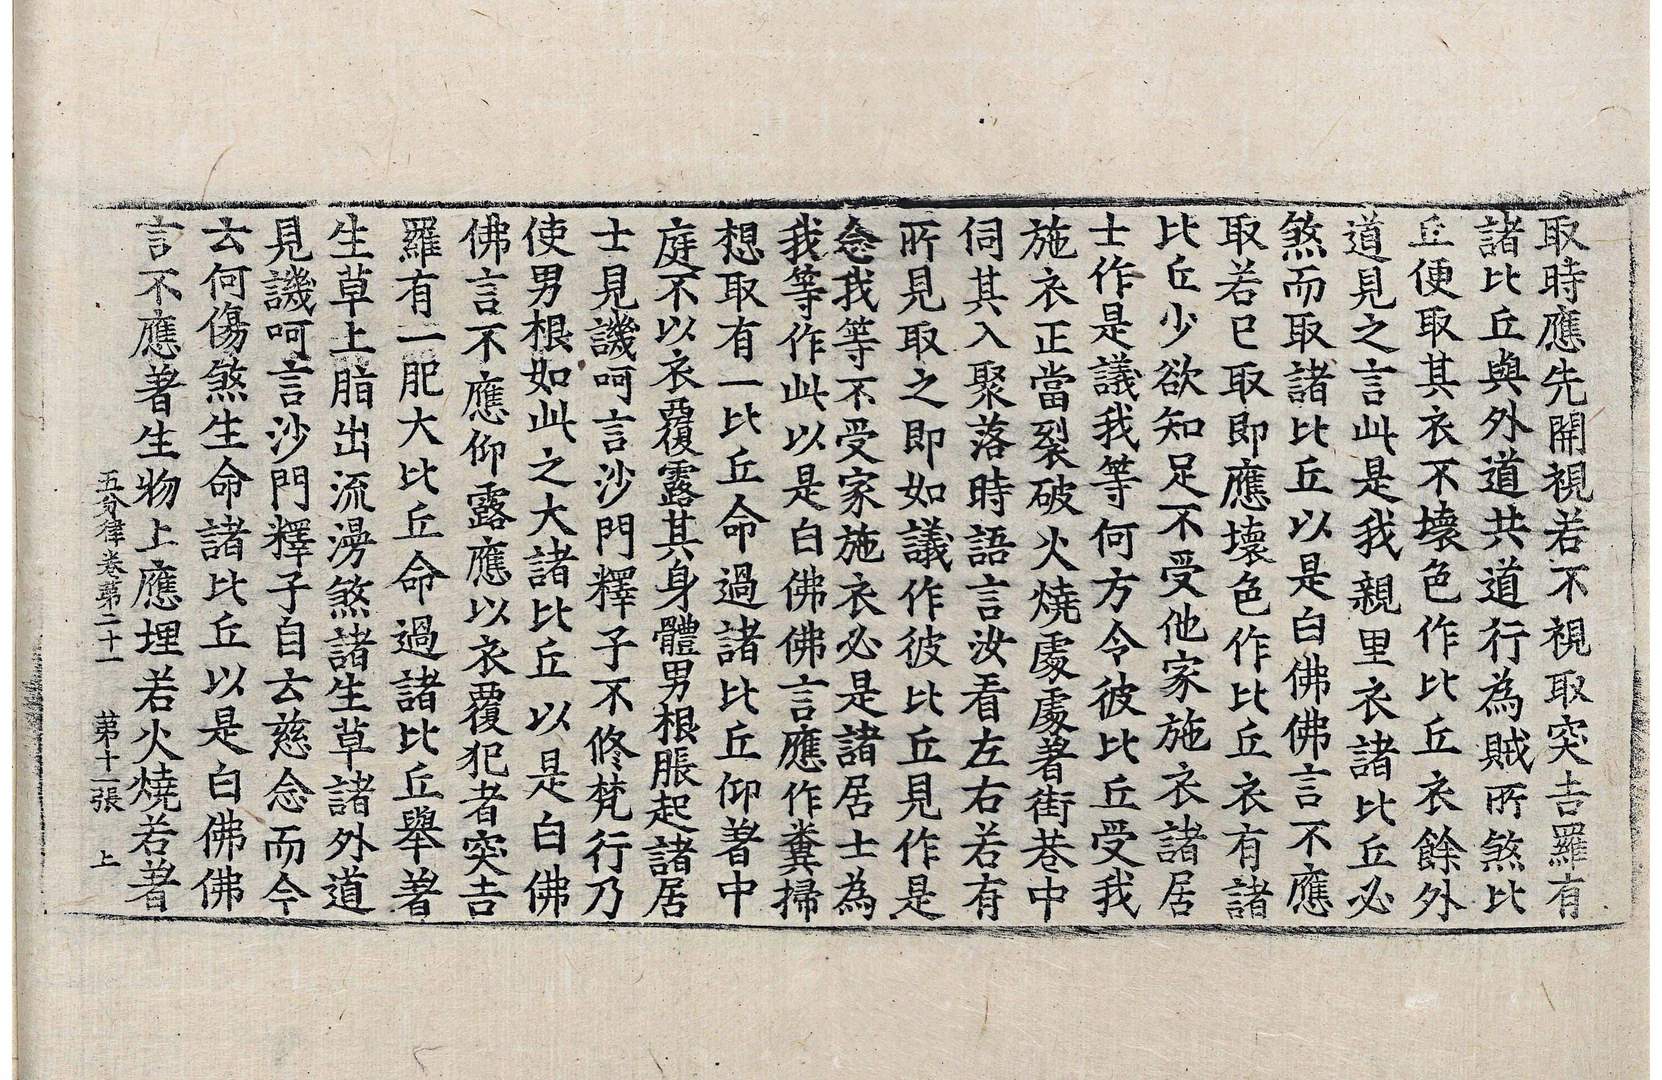 取時應先開視若不視取突吉羅有
諸比丘與外道共道行為賊所煞比
丘便取其衣不壞色作比丘衣餘外
道見之言此是我親里衣諸比丘必
煞而取諸比丘以是白佛佛言不應
取若已取即應壞色作比丘衣有諸
比丘少欲知足不受他家施衣諸居
士作是議我等何方令彼比丘受我
施衣正當裂破火燒處處著街巷中
伺其入聚落時語言汝看左右若有
所見取之即如議作彼比丘見作是
念我等不受家施衣必是諸居士為
我等作此以是白佛佛言應作糞掃
想取有一比丘命過諸比丘仰著中
庭不以衣覆露其身體男根脹起諸居
士見譏呵言沙門釋子不修梵行乃
使男根如此之大諸比丘以是白佛
佛言不應仰露應以衣覆犯者突吉
羅有一肥大比丘命過諸比丘舉著
生草上脂出流漫煞諸生草諸外道
見譏呵言沙門釋子自云慈念而今
云何傷煞生命諸比丘以是白佛佛
言不應著生物上應埋若火燒若著
五分律卷第二十一　第十二張　上